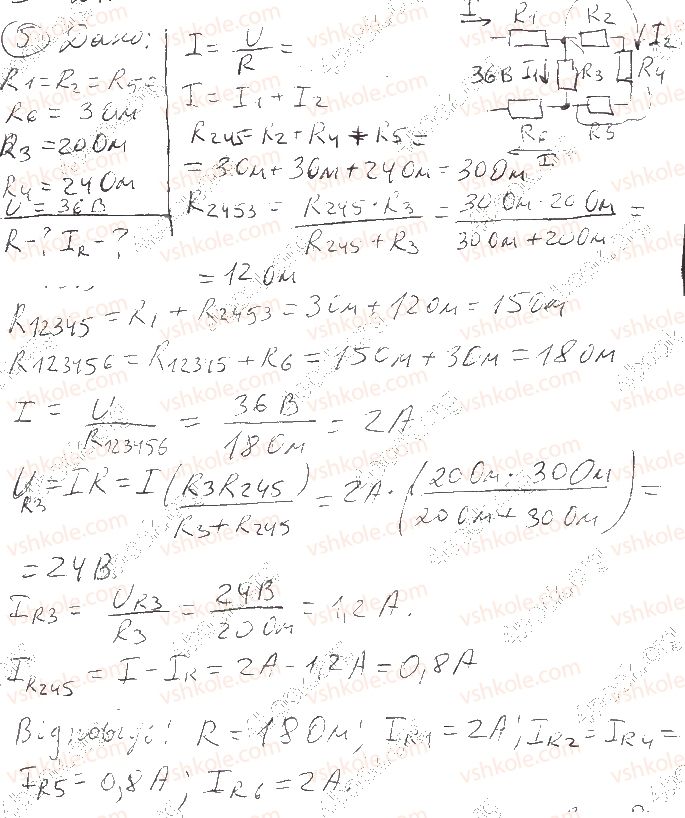 5 Дано:
R1=R2=R5=
R6=3Ом
R3=20Ом
R4=24Ом
U=36В
R-? IR-?
I = U/R =
I = I1 + I2
R245=R2+R4+R5=
=3Ом+3Ом+24Ом=30Ом
R2453 = R245·R3/R245+R3 = 30Ом·20Ом/30Ом+20Ом =
=12Ом
I R1 R2
I2
36В I1 R3 R4
R6 R5
I
R12345=R1+R2453=3Ом+12Ом=15Ом
R123456=R12345+R6=15Ом+3Ом=18Ом
I = U/R123456 = 36В/18Ом = 2А
UR3=IR=I(R3R245/R3+R245)=2А·(20Ом·30Ом/20Ом+30Ом)=
=24В.
IR3 = UR3/R3 = 24В/20Ом = 1,2А.
IR245 = I-IR=2А-1,2А=0,8А
Відповіді: R=18Ом; IR1=2А; IR2=IR4=
IR5=0,8А; IR6=2А.
vshkole.com